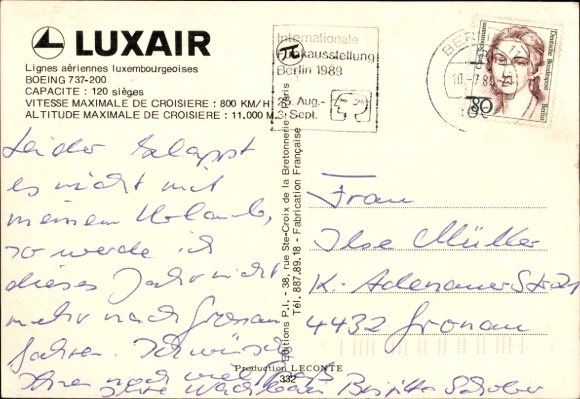 LUXAIR
Lignes aériennes luxembourgeoises
BOEING 737-200
CAPACITE : 120 sièges
VITESSE MAXIMALE DE CROISIERE : 800 KM/H
ALTITUDE MAXIMALE DE CROISIERE : 11.000 M.
Internationale
Funkausstellung
Berlin 1989
25. Aug.-
3. Sept.
BERLIN
10.-7.89
Deutsche Bundespost Berlin
80
Leider klappt
es nicht mit
meinem Urlaub,
so werde ich
dieses Jahr nicht
mehr nach Gronau
fahren. Ich wünsche
Ihnen noch viel
Ihre
Birgitta
Editions P.I. - 38, rue Ste-Croix de la Bretonnerie Paris
Tél. 887.89.18 - Fabrication Française
Frau
Ilse Müller
K. Adenauer Str
4432 Gronau
Production LECONTE
332